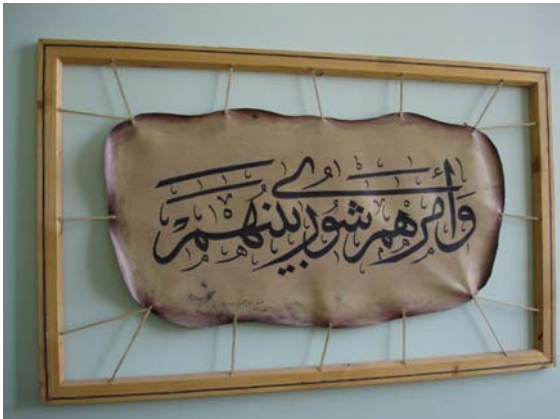 وَأَمْرُهُمْ شُورَى بَيْنَهُمْ